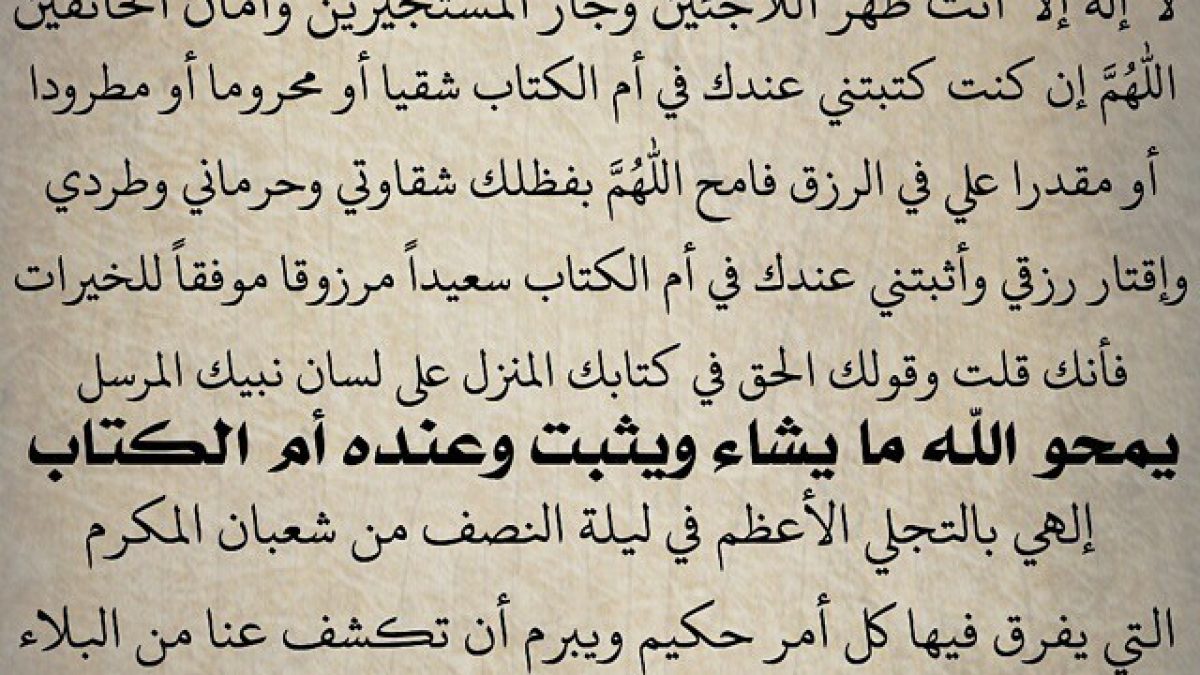 لا إله إلا أنت ظهر اللاجئين وجار المستجيرين وأمان الخائفين
اللّٰهُمَّ إن كنت كتبتني عندك في أم الكتاب شقيا أو محروما أو مطرودا
أو مقدرا علي في الرزق فامح اللّٰهُمَّ بفظلك شقاوتي وحرماني وطردي
وإقتار رزقي وأثبتني عندك في أم الكتاب سعيداً مرزوقا موفقاً للخيرات
فأنك قلت وقولك الحق في كتابك المنزل على لسان نبيك المرسل
يمحو اللّه ما يشاء ويثبت وعنده أم الكتاب
إلهي بالتجلي الأعظم في ليلة النصف من شعبان المكرم
التي يفرق فيها كل أمر حكيم ويبرم أن تكشف عنا من البلاء